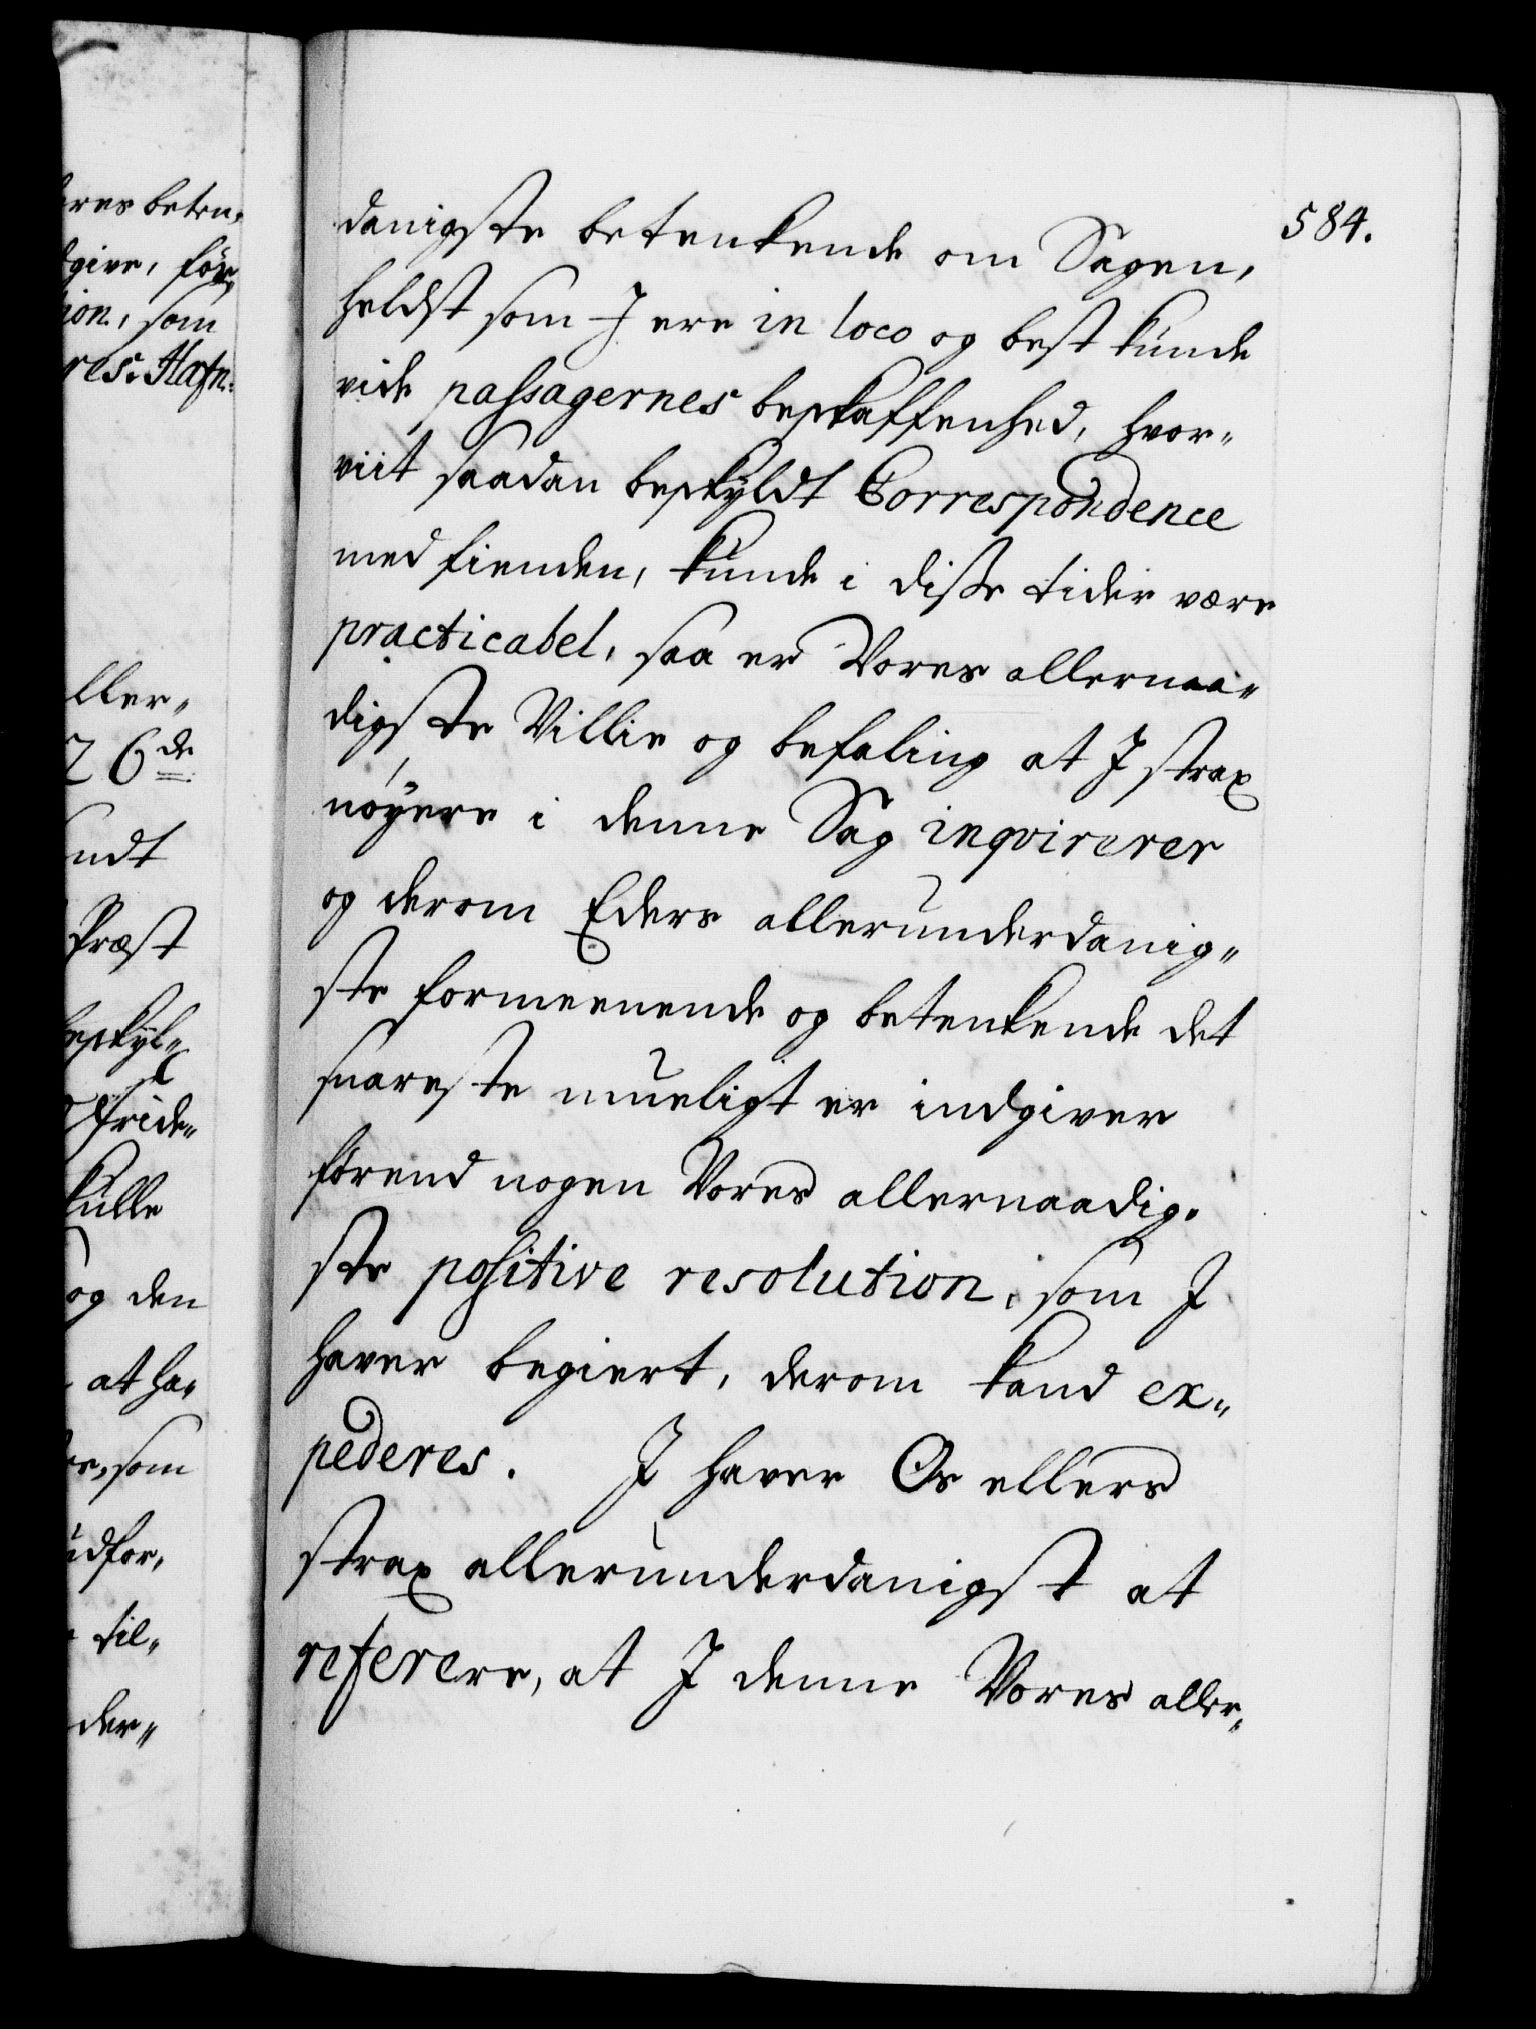 584.
danigste betenkende om Sagen,
heldst som I ere in loco og best kunde
vide passagernes beskaffenhed, hvor-
viit saadan beskyldt Correspondence
med fienden, kunde i disse tider være
practicabel, saa er Vores allernaa-
digste Villie og befaling at I strax
nøyere i denne Sag inqvirerer
og derom Eders allerunderdanig-
ste formeenende og betenkende det
snareste mueligt er indgiver
førend nogen Vores allernaadig-
ste positive resolution, som I
haver begiert, derom kand ex-
pederes. I haver Os ellers
strax allerunderdanigst at
referere, at I denne Vores aller-
res beten-
give, før
ion, som
res: Hafn:
ller-
26de
ndt
Præst
beskyl-
Fride-
kulle
og den
at ha-
som
udfor,
til-
der-